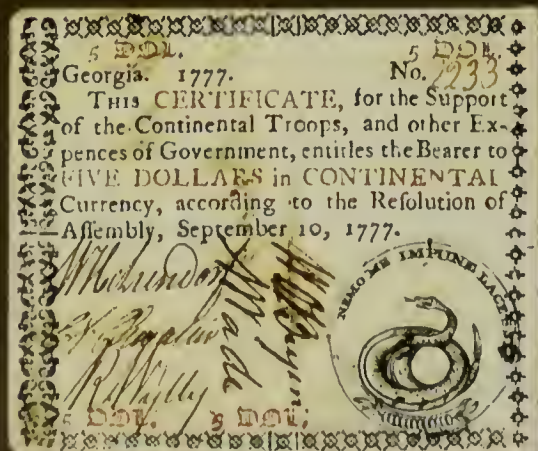 5 DOL. 5 DOL.
Georgia. 1777. No. 2233
THIS CERTIFICATE, for the Support
of the Continental Troops, and other Ex-
pences of Government, entitles the Bearer to
FIVE DOLLARS in CONTINENTAL
Currency, according to the Reſolution of
Aſſembly, September 10, 1777.
NEMO ME IMPUNE LACESSET
Wade
Rd Wylly
5 DOL. 5 DOL.